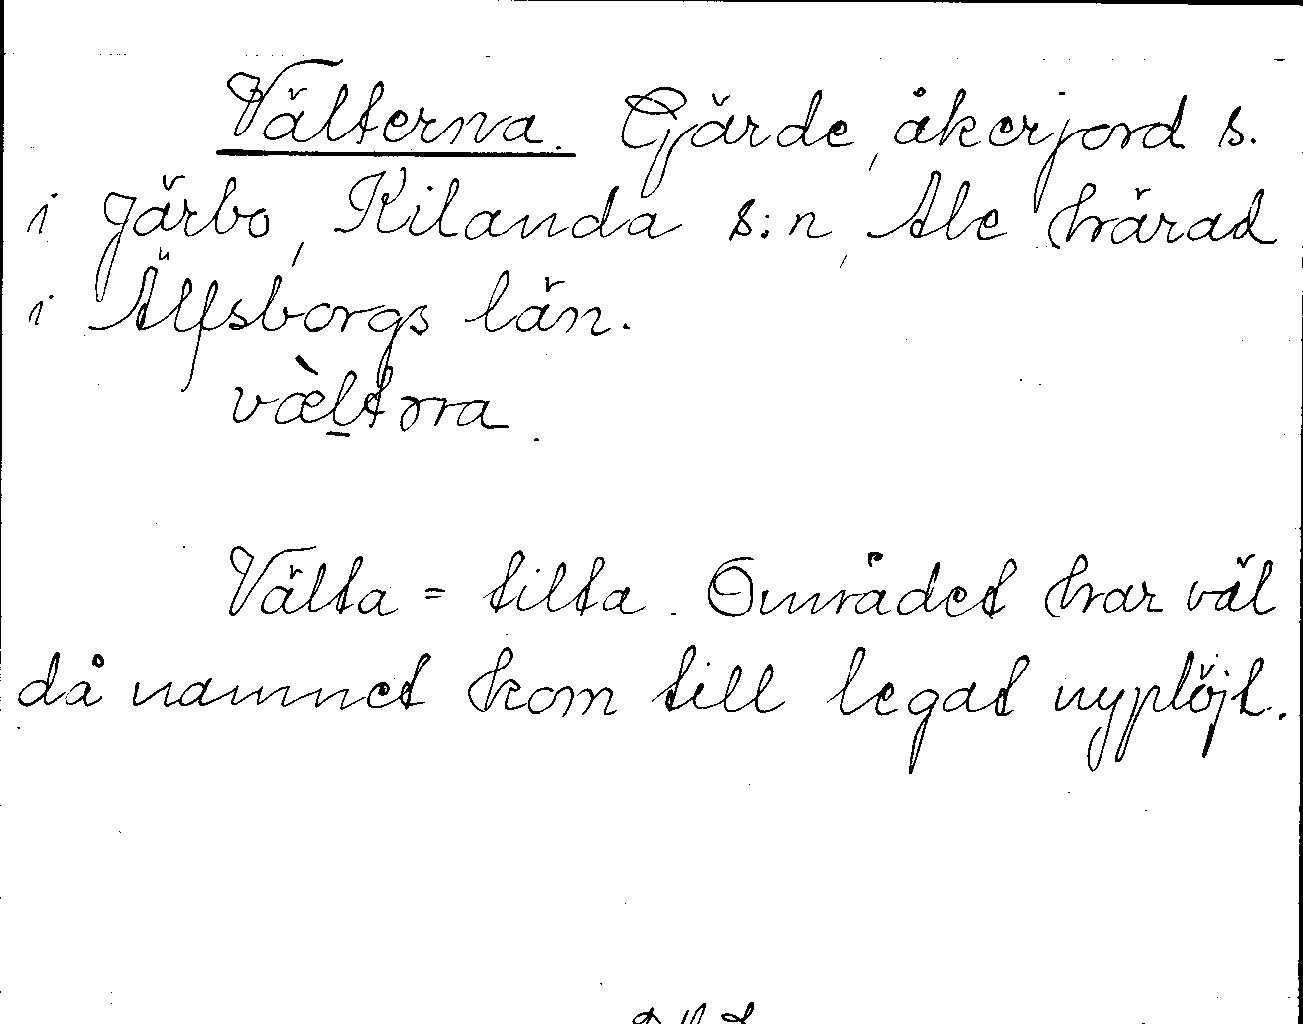 Välterna. Gärde, åkerjord s.
i Järbo, Kilanda s:n, Ale härad
i Älfsborgs län.
vàeltɔrra.
Välta = tilta. Området har väl
då namnet kom till legat nyplöjt.